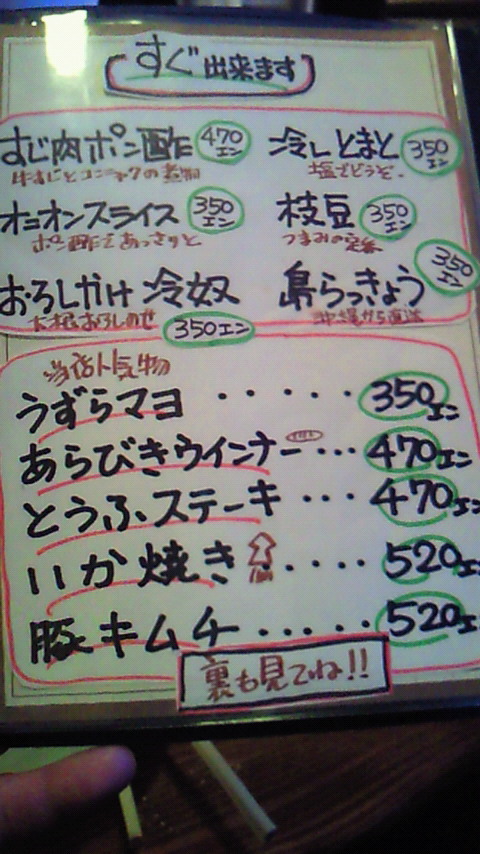 すぐ出来ます
すじ肉ポン酢 470エン
牛すじとコンニャクの煮物
冷しとまと 350エン
塩でどうぞ。
オニオンスライス 350エン
ポン酢であっさりと
枝豆 350エン
つまみの定番
おろしかけ冷奴 350エン
大根おろしのせ
島らっきょう 350エン
沖縄から直送
当店人気物
うずらマヨ ・・・・・ 350エン
あらびきウインナー ・・・ 470エン
とうふステーキ ・・・ 470エン
いか焼き ・・・・ 520エン
豚キムチ ・・・・・ 520エン
裏も見てね!!